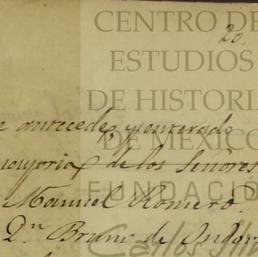 CENTRO DE
ESTUDIOS
DE HISTORIA
DE MEXICO
FUNDACIÓ
Carlos Slim
20.
e antecede, y enterado
mayoria de los Señores
Manuel Romero.
Dn. Bruno de